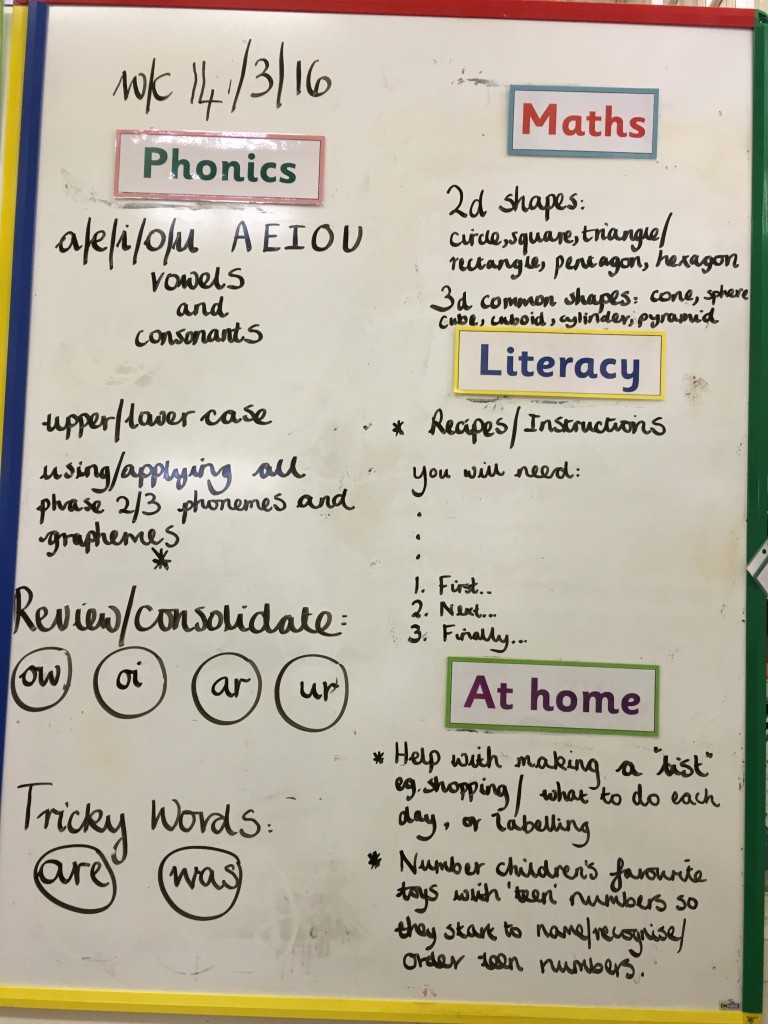 w/c 14/3/16
Phonics
a/e/i/o/u A E I O U
vowels
and
consonants
upper/lower case
using/applying all
phase 2/3 phonemes and
graphemes
*
Review/consolidate:
ow oi ar ur
Tricky Words:
are was
Maths
2d shapes:
circle, square, triangle/
rectangle, pentagon, hexagon
3d common shapes: cone, sphere
cube, cuboid, cylinder, pyramid
Literacy
* Recipes/Instructions
you will need:
.
.
.
1. First..
2. Next...
3. Finally...
At home
* Help with making a "list"
eg. shopping/ what to do each
day, or labelling
* Number children's favourite
toys with 'teen' numbers so
they start to name/recognise/
order teen numbers.